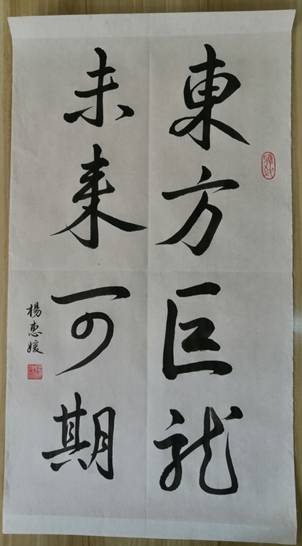 東方巨龙
未来可期
楊惠媛